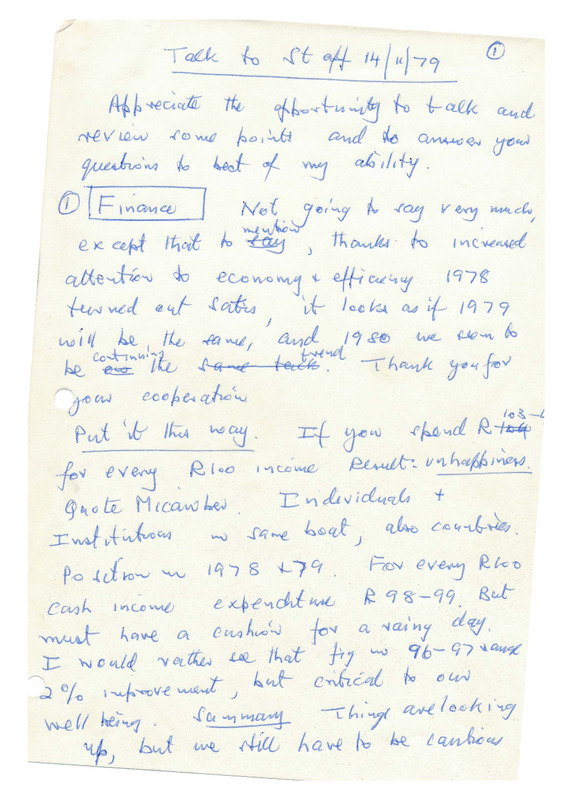 ①
Talk to Staff 14/11/79
Appreciate the opportunity to talk and
review some points and to answer your
questions to best of my ability.
① Finance Not going to say very much,
mention
except that to say, thanks to increased
attention to economy & efficiency 1978
turned out satis, it looks as if 1979
will be the same, and 1980 we seem to
continuing trend
be the same tack. Thank you for
your cooperation
103-
Put it this way. If you spend R
for every R100 income Result: unhappiness.
Quote Micawber. Individuals +
Institutions in same boat, also countries.
Position in 1978 + 79. For every R100
cash income expenditure R 98-99. But
must have a cushion for a rainy day.
I would rather see that fig in 96-97 range
2% improvement, but critical to our
well being. Summary Things are looking
up, but we still have to be cautious